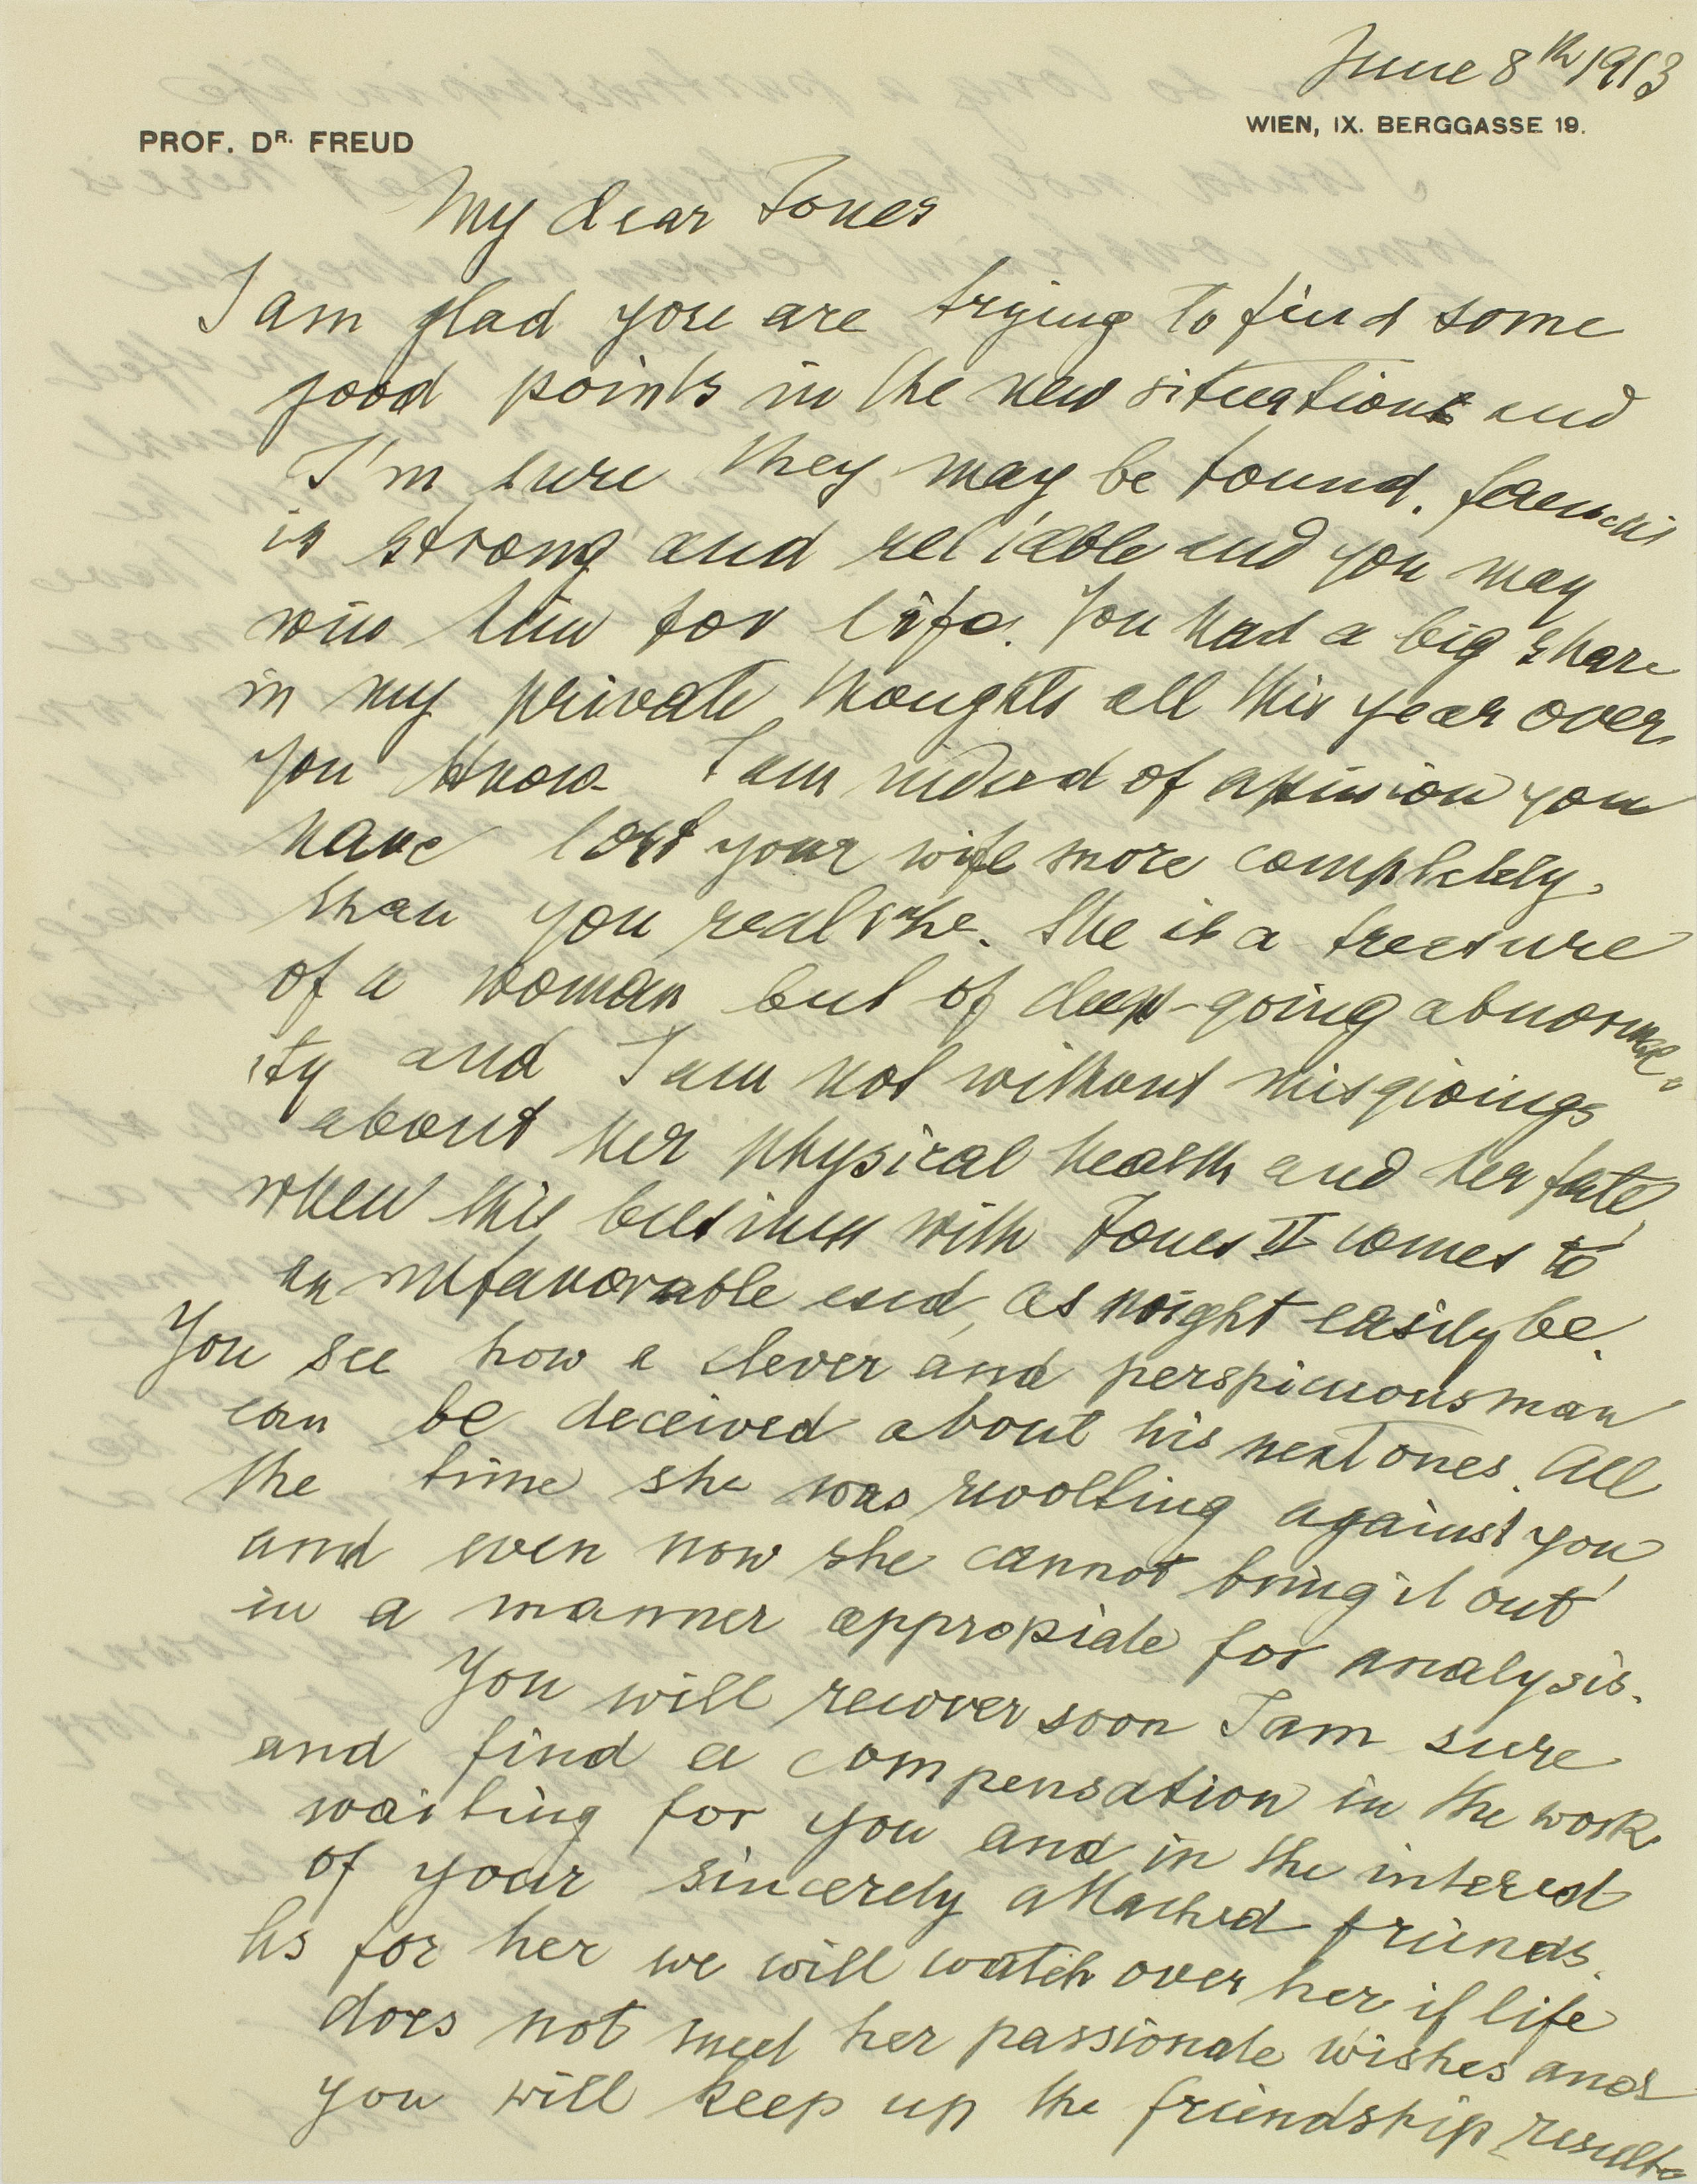 June 8th 1913
PROF. DR. FREUD
WIEN, IX. BERGGASSE 19.
My dear Jones
I am glad you are trying to find some
good points in the new situation and
I'm sure they may be found. Ferenczi
is strong and reliable and you may
win him for life. You had a big share
in my private thoughts all this year over,
you know. I am indeed of opinion you
have lost your wife more completely
than you realise. She is a treasure
of a woman but of deep-going abnormal-
ity and I am not without misgivings
about her physical health and her fate,
when this business with Jones II comes to
an unfavorable end, as might easily be.
You see how a clever and perspicuous man
can be deceived about his next ones. All
the time she was revolting against you
and even now she cannot bring it out
in a manner appropiate for analysis.
You will recover soon I am sure
and find a compensation in the work
waiting for you and in the interest
of your sincerely attached friends.
As for her we will watch over her if life
does not meet her passionate wishes and
you will keep up the friendship result-